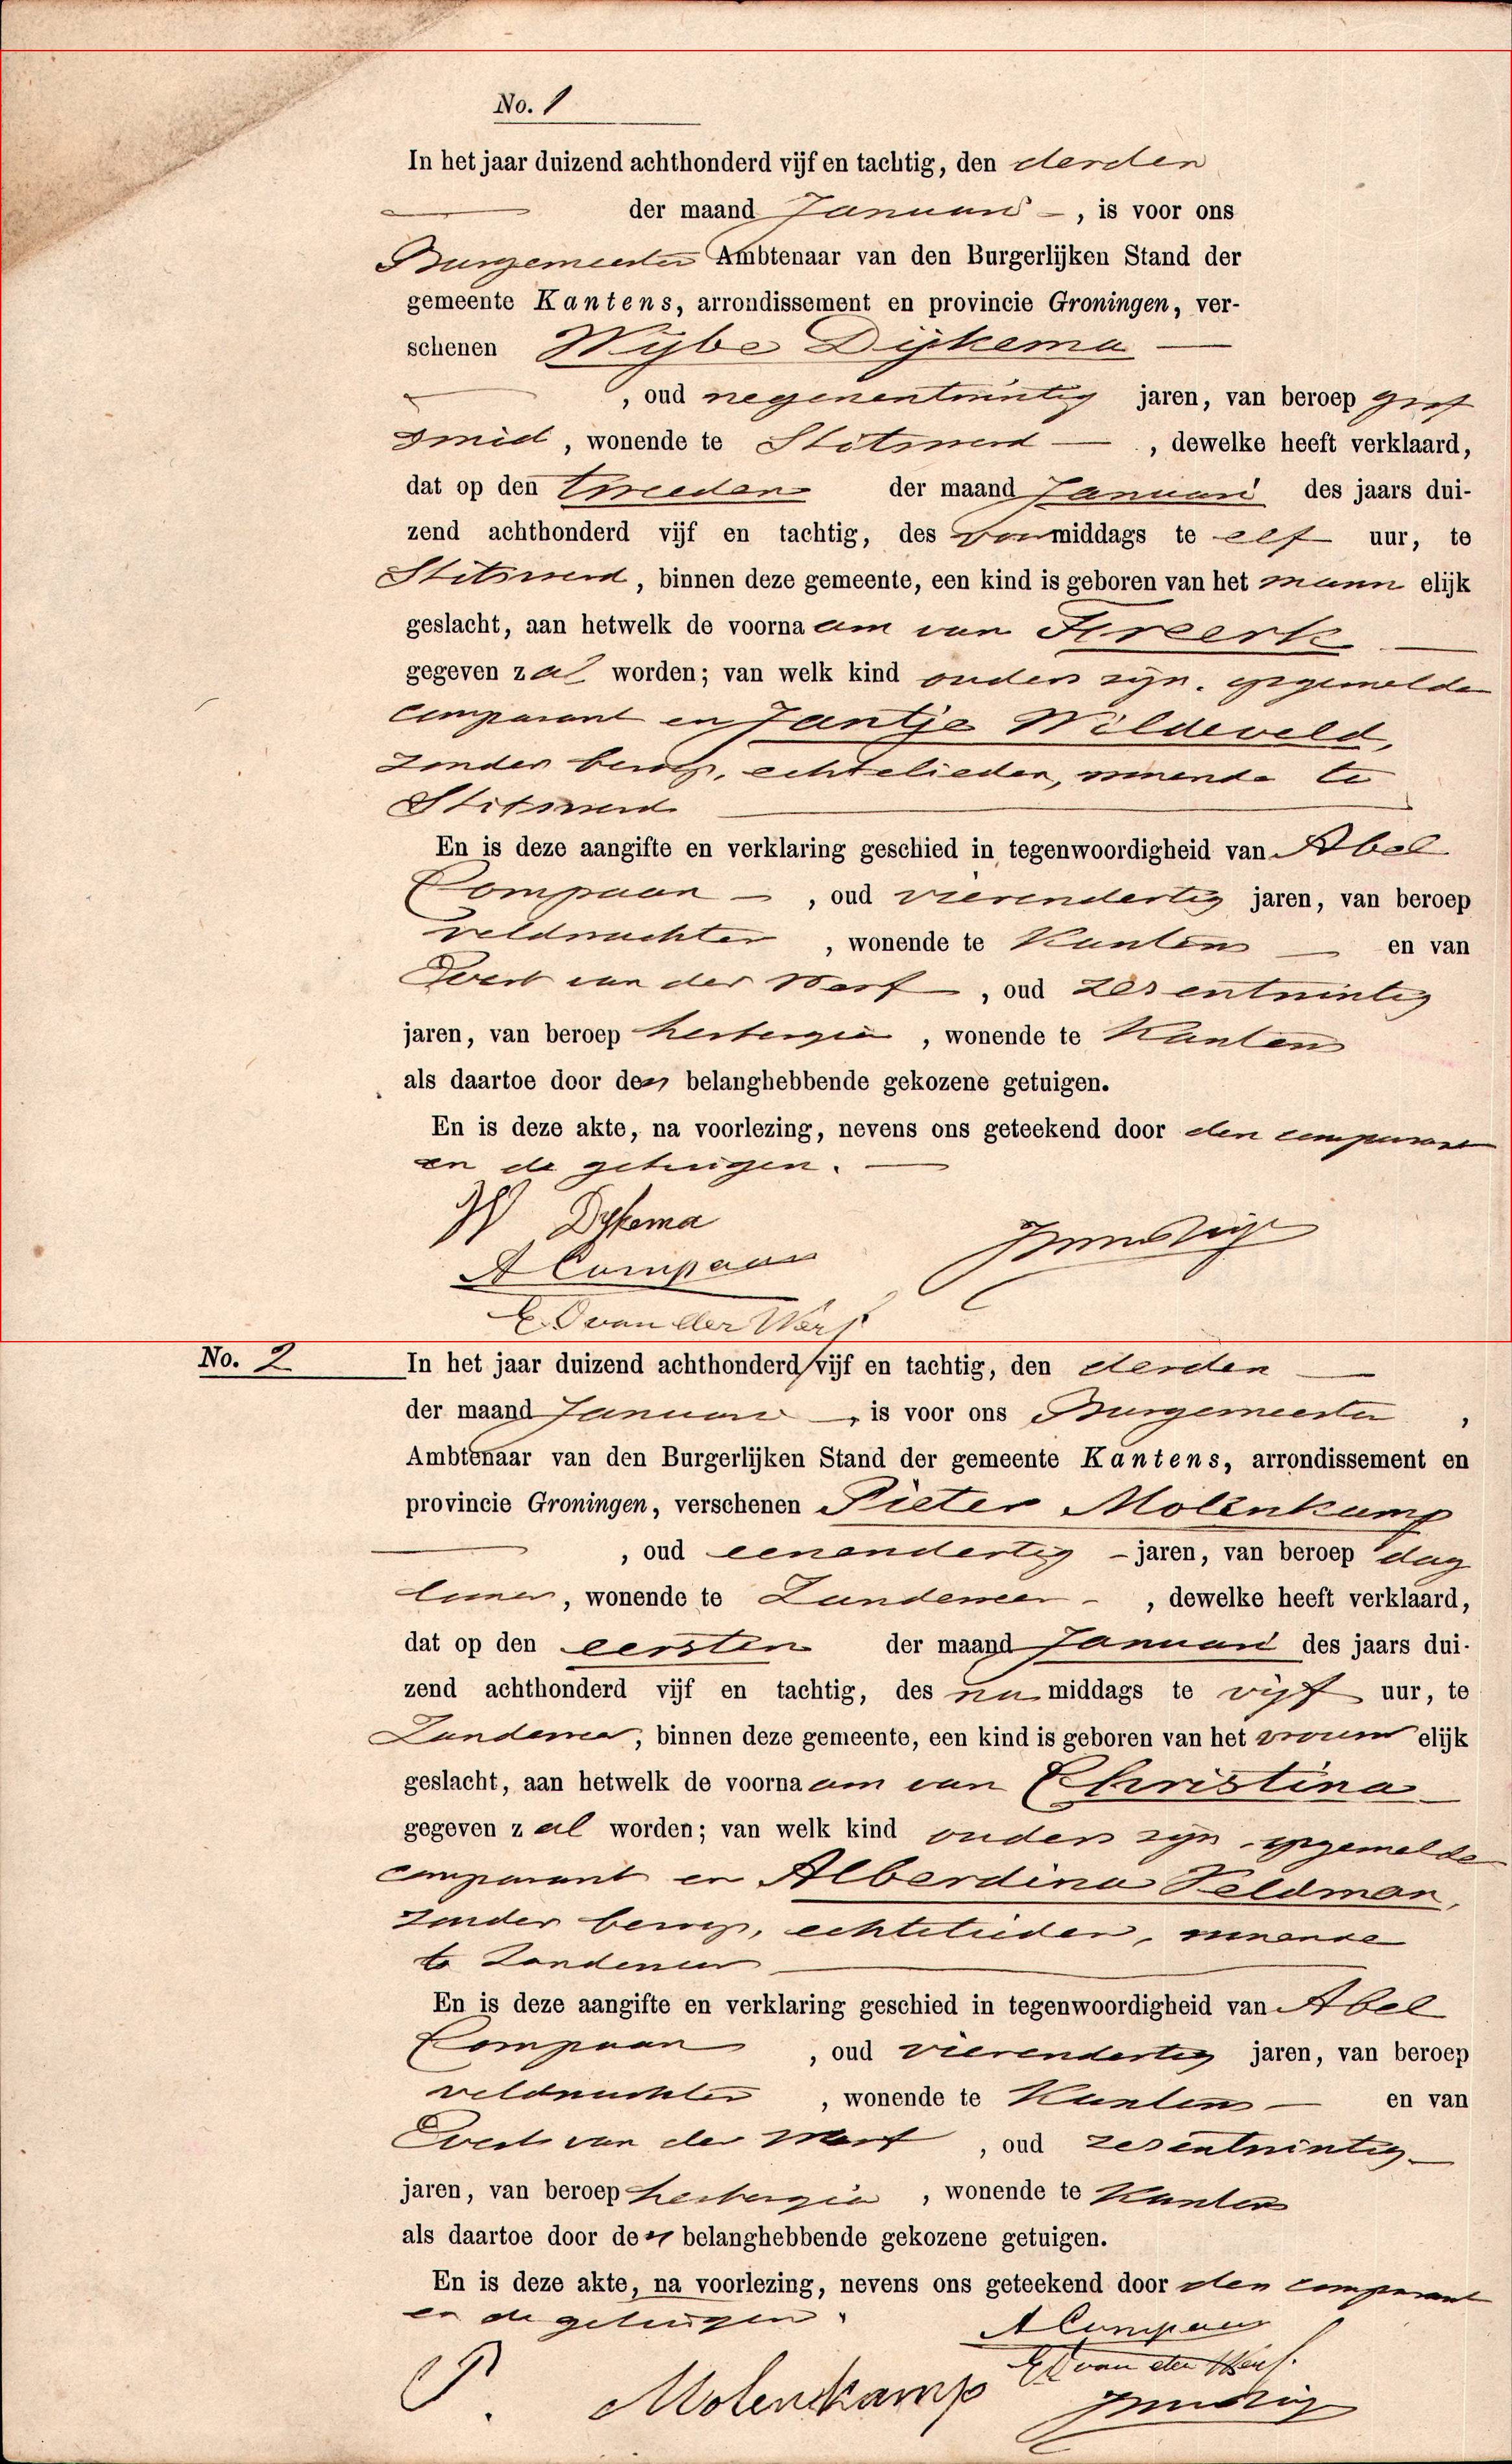 No. 1
In het jaar duizend achthonderd vijf en tachtig, den derden
der maand Januari -, is voor ons
Burgemeester Ambtenaar van den Burgerlijken Stand der
gemeente Kantens, arrondissement en provincie Groningen, ver-
schenen Wybe Dijkema
, oud negenentwintig jaren, van beroep grof
smid, wonende te Stitswerd - , dewelke heeft verklaard,
dat op den tweeden der maand Januari des jaars dui-
zend achthonderd vijf en tachtig, des voormiddags te elf uur, te
Stitswerd, binnen deze gemeente, een kind is geboren van het mannelijk
geslacht, aan hetwelk de voornaam van
gegeven zal worden; van welk kind ouders zijn, opgemelde
comparant en Jantje Wildeveld,
zonder beroep, echtelieden, wonende te
Stitswerd
En is deze aangifte en verklaring geschied in tegenwoordigheid van Abel
Compaan - , oud vierendertig jaren, van beroep
veldwachter , wonende te Kantens en van
Evert van der Werf , oud zesentwintig
jaren, van beroep herbergier , wonende te Kantens
als daartoe door den belanghebbende gekozene getuigen.
En is deze akte, na voorlezing, nevens ons geteekend door den comparant
en de getuigen.
W Dykema
A Compaan
E. D van der Werf
No. 2
In het jaar duizend achthonderd vijf en tachtig, den derden
der maand Januari , is voor ons Burgemeester ,
Ambtenaar van den Burgerlijken Stand der gemeente Kantens, arrondissement en
provincie Groningen, verschenen Pieter Molenkamp
, oud eenendertig - jaren, van beroep dag
looner, wonende te Zandeweer - , dewelke heeft verklaard,
dat op den eersten der maand Januari des jaars dui-
zend achthonderd vijf en tachtig, des namiddags te vijf uur, te
Zandeweer, binnen deze gemeente, een kind is geboren van het vrouwelijk
geslacht, aan hetwelk de voornaam van Christina
gegeven zal worden; van welk kind ouders zijn, opgemelde
comparant en Alberdina Veldman,
zonder beroep, echtelieden, wonende
te Zandeweer
En is deze aangifte en verklaring geschied in tegenwoordigheid van Abel
Compaan , oud vierendertig jaren, van beroep
veldwachter , wonende te Kantens - en van
Evert van der Werf , oud zesentwintig
jaren, van beroep herbergier , wonende te Kantens
als daartoe door den belanghebbende gekozene getuigen.
En is deze akte, na voorlezing, nevens ons geteekend door den comparant
en de getuigen.
A Compaan
E D van der Werf.
P. Molenkamp